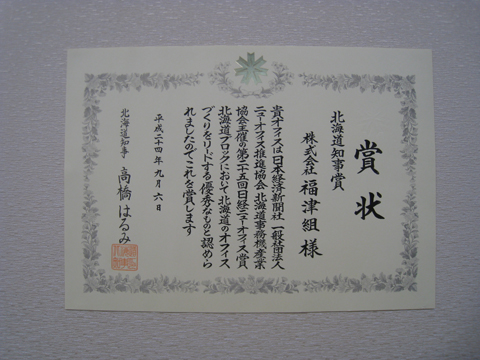 賞状
北海道知事賞
株式会社 福津組 様
貴オフィスは日本経済新聞社 一般社団法人
ニューオフィス推進協会 北海道事務機産業
協会主催の第二十五回日経ニューオフィス賞
北海道ブロックにおいて北海道のオフィス
づくりをリードする優秀なものと認めら
れましたのでこれを賞します
平成二十四年九月六日
北海道知事 高橋はるみ